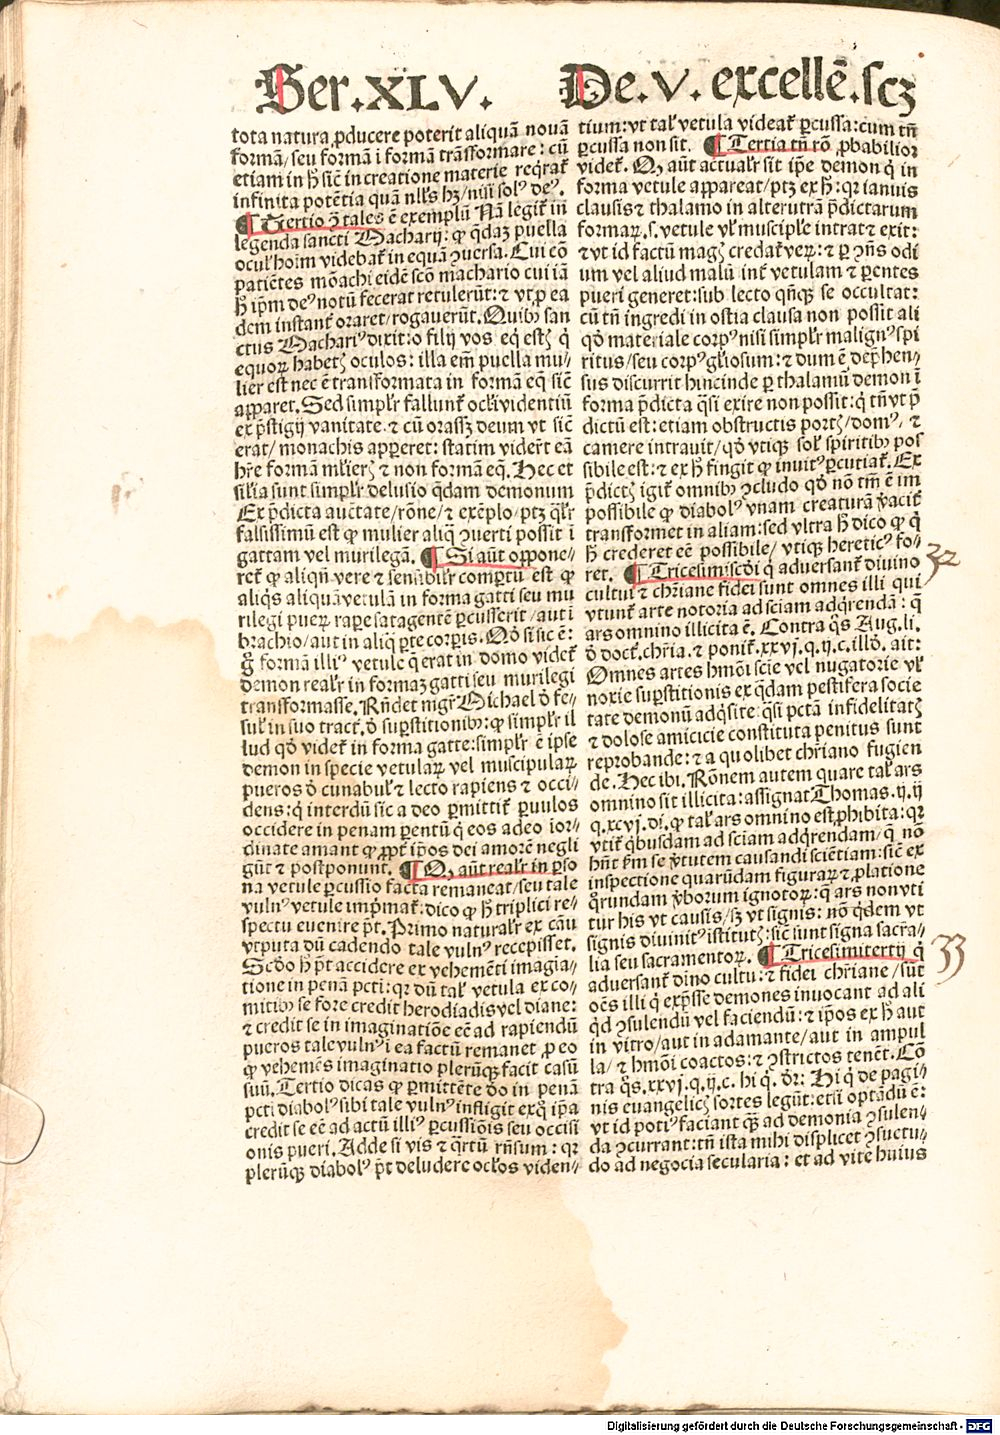 Ser.XLV.
De.V. excellē.scꝫ
tota natura ꝓducere poterit aliquā nouā
formā/seu formā ī formā trāsformare: cū
etiam in ħ sicē in creatione materie reqͥrat͛
infinita potētia quā nll̓s hꝫ/nisi solꝰ deꝰ.
¶ Tertio ꝙ tales ē exemplū Nā legit͛ in
legenda sancti Macharij: ꝙ qͣdaꝫ puella
ocul̓ hoim̄ videbat͛ in equā ꝯuersa. Cui eō
patiētes mōachi eidē scō machario cui iā
ħ ip̄m deꝰ notū fecerat retulerūt: ⁊ vt ꝓ ea
dem instant͛ oraret/rogauerūt. Quibꝰ san
ctus Machariꝰ dixit: o filij vos eqͥ estꝭ qͥ
equoꝝ habetꝭ oculos: illa em̄ puella mu⸗
lier est nec ē transformata in formā eq̄ sicē
apparet. Sed simpl̓r fallunt͛ ocl̓i videntiū
ex p̄stigij vanitate. ⁊ cū orassꝫ deum vt sic
erat/monachis apperet: statim viderūt eā
hr̄e formā ml̓ierꝭ ⁊ non formā eq̄. Hec et
sil̓ia sunt simpl̓r delusio qͣdam demonum
Ex p̄dicta auctate/rōne/⁊ exēplo/ptꝫ ql̓r
falsissimū est ꝙ mulier aliq̄ ꝯuerti possit ī
gattam vel murilegā. ¶ Si aūt oppone⸗
ret͛ ꝙ aliqn̄ vere ⁊ sensibil̓r compertū est ꝙ
aliqͥs aliquā vetulā in forma gatti seu mu
rilegi pueꝝ rape satagentē ꝑcusserit/aut ī
brachio/aut in aliq̄ ꝑte corꝑis. Qd̓ si sic ē:
gͦ formā illiꝰ vetule q̄ erat in domo videt͛
demon real̓r in formaꝫ gatti seu murilegi
transformasse. Rn̄det mgr̄ Michael d̓ fe⸗
sul̓ in suo tract. d̓ suꝑstitionibꝰ: ꝙ simpl̓r il
lud qd̓ videt͛ in forma gatte: simpl̓r ē ipse
demon in specie vetulaꝝ vel muscipulaꝝ
pueros d̓ cunabul̓ ⁊ lecto rapiens ⁊ occi⸗
dens: qͥ interdū sic a deo ꝑmittit͛ ꝑuulos
occidere in penam ꝑentū qͥ eos adeo īor⸗
dinate amant ꝙ ꝓpt̓ ip̄os dei amorē negli
gūt ⁊ postponunt. ¶ Qꝫ aūt real̓r in ꝑso
na vetule ꝑcussio facta remaneat/seu tale
vulnꝰ vetule imp̄mat͛: dico ꝙ ħ triplici re⸗
spectu euenire pt̄. Primo natural̓r ex cāu
vtputa dū cadendo tale vulnꝰ recepisset.
Scd̓o ħ pt̄ accidere ex vehemēti imagīa⸗
tione in penā pcti: qꝛ dū tal̓ vetula ex co⸗
mitibꝰ se fore credit herodiadis vel diane:
⁊ credit se in imaginatiōe eē ad rapiendū
pueros tale vulnꝰ ī ea factū remanet ꝓ eo
ꝙ vehemēs imaginatio plerūqꝫ facit casū
suū. Tertio dicas ꝙ ꝑmittēte d̓o in penā
pcti diabolꝰ sibi tale vulnꝰ infligit exq̇ ip̄a
credit se eē ad actū illiꝰ ꝑcussiōis seu occisi
onis pueri. Adde si vis ⁊ qͣrtū rn̄sum: qꝛ
plerūqꝫ diabolꝰ pt̄ deludere ocl̓os viden⸗
tium: vt tal̓ vetula videat͛ ꝑcussa: cum tn̄
ꝑcussa non sit. ¶ Tertia tn̄ rō ꝓbabilior
videt͛. Qꝫ aūt actual̓r sit ip̄e demon qͥ in
forma vetule appareat/ptꝫ ex ħ: qꝛ ianuis
clausis ⁊ thalamo in alterutrā p̄dictarum
formaꝝ.s. vetule vl̓ musciple intrat ⁊ exit:
⁊ vt id factū magꝭ credat͛ veꝝ: ⁊ ꝑ ꝯn̄s odi
um vel aliud malū int̓ vetulam ⁊ ꝑentes
pueri generet: sub lecto qn̄qꝫ se occultat:
cū tn̄ ingredi in ostia clausa non possit ali
qd̓ materiale corpꝰ nisi simpl̓r malignꝰ spi
ritus/seu corpꝰ gl̓iosum: ⁊ dum ē dep̄hen⸗
sus discurrit hincinde ꝑ thalamū demon ī
forma p̄dicta qͣsi exire non possit: qͥ tn̄ vt p̄
dictū est: etiam obstructis portꝭ/domꝰ/⁊
camere intrauit/qd̓ vtiqꝫ sol̓ spiritibꝰ pos
sibile est: ⁊ ex ħ fingit ꝙ inuitꝰ ꝑcutiat͛. Ex
p̄dictꝭ igit͛ omnibꝰ ꝯcludo qd̓ nō tm̄ ē im
possibile ꝙ diabolꝰ vnam creaturā v̓acit͛
transformet in aliam: sed vltra ħ dico ꝙ qͥ
ħ crederet eē possibile/vtiqꝫ hereticꝰ fo⸗
ret. ¶ Tricesimiscd̓i qͥ aduersant͛ diuino
cultui ⁊ chr̄iane fidei sunt omnes illi qui
vtunt͛ arte notoria ad sciam adqͥrendā: q̄
ars omnino illicita ē. Contra qͦs Aug. li.
d̓ doct. chr̄ia. ⁊ ponit͛.xxvj.q.ij.c.illd̓. ait:
Omnes artes hmōi scie vel nugatorie vl̓
noxie suꝑstitionis ex qͣdam pestifera socie
tate demonū adqͥsite: qͣsi pctā infidelitatꝭ
⁊ dolose amicicie constituta penitus sunt
reprobande: ⁊ a quolibet chr̄iano fugien
de. Hec ibi. Rōnem autem quare tal̓ ars
omnino sit illicita: assignat Thomas.ij.ij
q.xcvj. di. ꝙ tal̓ ars omnino est ꝓhibita: qꝛ
vtit͛ qͥbusdam ad sciam adqͥrendam/q̄ nō
hn̄t ẜm se v̓tutem causandi sciētiam: sic̄ ex
inspectione quarūdam figuraꝝ ⁊ ꝓlatione
qͦrundam v̓borum ignotoꝝ: q̄ ars non vti
tur his vt causis/sꝫ vt signis: nō qͥdem vt
signis diuinitꝰ īstitutꝭ: sic̄ sunt signa sacra⸗
lia seu sacramentoꝝ. ¶ Tricesimitertij qͥ
aduersant͛ dino cultu: ⁊ fidei chr̄iane/sūt
oēs illi qͥ exp̄sse demones inuocant ad ali
qͥd ꝯsulendū vel faciendū: ⁊ ip̄os ex ħ aut
in vitro/aut in adamante/aut in ampul
la/⁊ hmōi coactos: ⁊ ꝯstrictos tenēt. Cō
tra qͦs.xxvj.q.ij.c. hi qͥ. dr̄: Hi qͥ de pagi⸗
nis euangelicꝭ sortes legūt: etsi optādū ē:
vt id potiꝰ faciant qͣꝫ ad demonia ꝯsulen⸗
da ꝯcurrant: tn̄ ista mihi displicet ꝯsuetu⸗
do ad negocia secularia: et ad vite huius
32
33
Digitalisierung gefördert durch die Deutsche Forschungsgemeinschaft - DFG